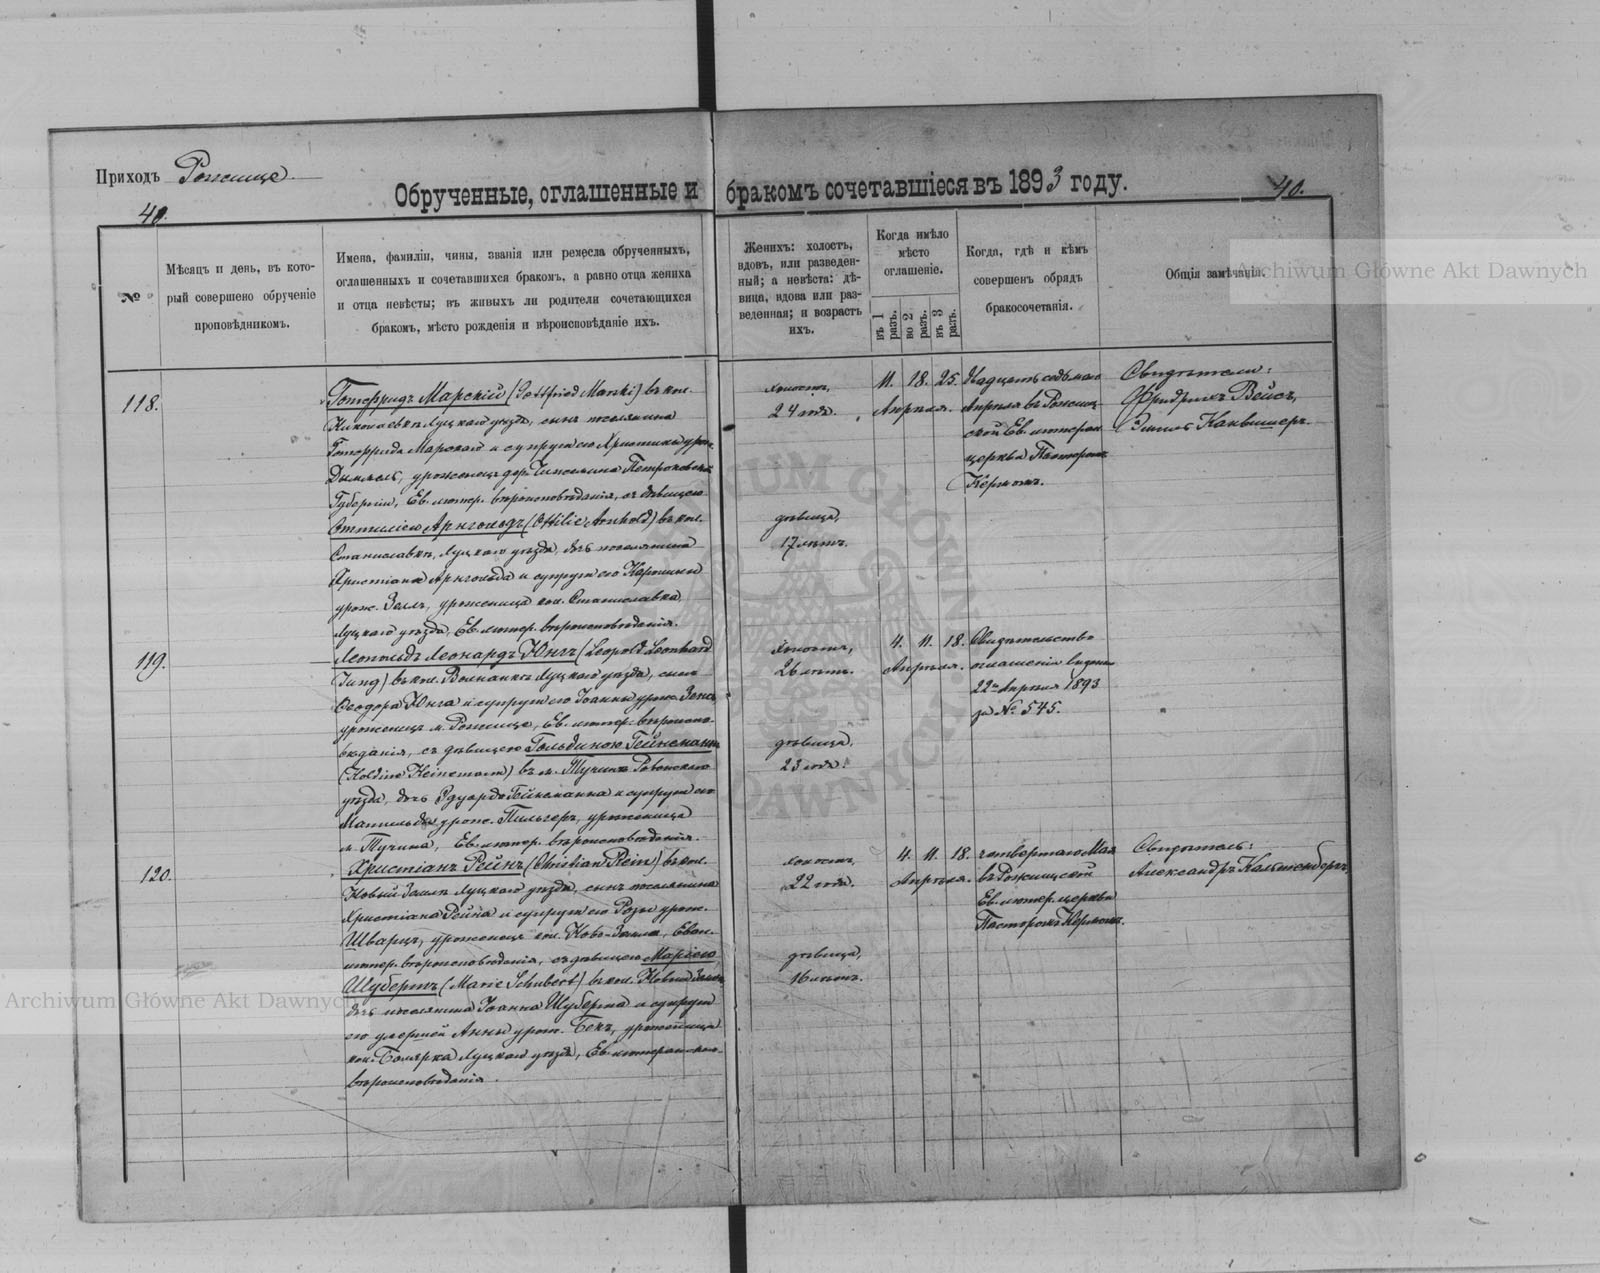 Приходъ Рожище.
Обрученные, оглашенные и бракомъ сочетавшіеся въ 1893 году.
40.
40.
№
Мѣсяцъ и день, въ кото-
рый совершено обрученіе
проповѣдникомъ.
Имена, фамиліи, чины, званія или ремесла обрученныхъ,
оглашенныхъ и сочетавшихся бракомъ, а равно отца жениха
и отца невѣсты; въ живыхъ ли родители сочетающихся
бракомъ, мѣсто рожденія и вѣроисповѣданіе ихъ.
Женихъ: холостъ,
вдовъ, или разведен-
ный; а невѣста: дѣ-
вица, вдова или раз-
веденная; и возрастъ
ихъ.
Когда имѣло
мѣсто
оглашеніе.
въ 1 разъ.
во 2 разъ.
въ 3 разъ.
Когда, гдѣ и кѣмъ
совершенъ обрядъ
бракосочетанія.
Общія замѣчанія.
Archiwum Główne Akt Dawnych
118.
Готфридъ Марскій (Gottfried Marski) въ кол.
Николаевкѣ Луцкаго уѣзда, сынъ поселянина
Готфрида Марскаго и супруги его Христины урож.
уроженецъ дер. Петроковской
Губерніи, Ев. лютер. вѣроисповѣданія, съ дѣвицею
Оттиліею Арнгольдъ (Ottilie Arnhold) въ кол.
Станиславкѣ, Луцкаго уѣзда, дочь поселянина
Христіана Арнгольда и супруги его Каролины
урож. Зелль, уроженица кол. Станиславка,
Луцкаго уѣзда, Ев. лютер. вѣроисповѣданія.
холостъ,
24 года.
дѣвица,
17 лѣтъ.
11. 18. 25.
Апрѣля.
Двадцать седьмаго
Апрѣля въ Рожищ-
ской Ев. лютеран.
церкви Пасторомъ
Кёрномъ.
Свидѣтели:
Фридрихъ Вейсъ,
119.
Леопольдъ Леонардъ Юнгъ (Leopold Leonhard
Jung) въ кол. Луцкаго уѣзда, сынъ
Ѳеодора Юнга и супруги его Іоанны урож.
уроженецъ м. Рожище, Ев. лютер. вѣроиспо-
вѣданія, съ дѣвицею Гольдиною Гейнеманъ
(Holdine Heinemann) въ м. Тучинѣ Ровенскаго
уѣзда, дочь Эдуарда Гейнеманна и супруги его
Матильды урож. Пильгеръ, уроженица
м. Тучина, Ев. лютер. вѣроисповѣданія.
холостъ,
26 лѣтъ.
дѣвица,
23 года.
4. 11. 18.
Апрѣля.
Свидѣтельство
оглашенія выдано
22го Апрѣля 1893
за № 545.
120.
Христіанъ Рейнъ (Christian Rein) въ кол.
Новый Луцкаго уѣзда, сынъ поселянина
Христіана Рейна и супруги его Розы урож.
Шварцъ, уроженецъ кол. Еван.
лютер. вѣроисповѣданія, съ дѣвицею Маріею
Шубертъ (Marie Schubert) въ кол. Новый
дочь поселянина Іоанна Шуберта и супруги
его умершей Анны урож. Бекъ, уроженица
кол. Боярка Луцкаго уѣзда, Ев. лютеранскаго
вѣроисповѣданія.
холостъ,
22 года.
дѣвица,
16 лѣтъ.
4. 11. 18.
Апрѣля.
четвертаго Мая
въ Рожищской
Ев. лютер. церкви
Пасторомъ Кёрномъ.
Свидѣтель:
Александръ Кальтенбергъ.
Archiwum Główne Akt Dawnych